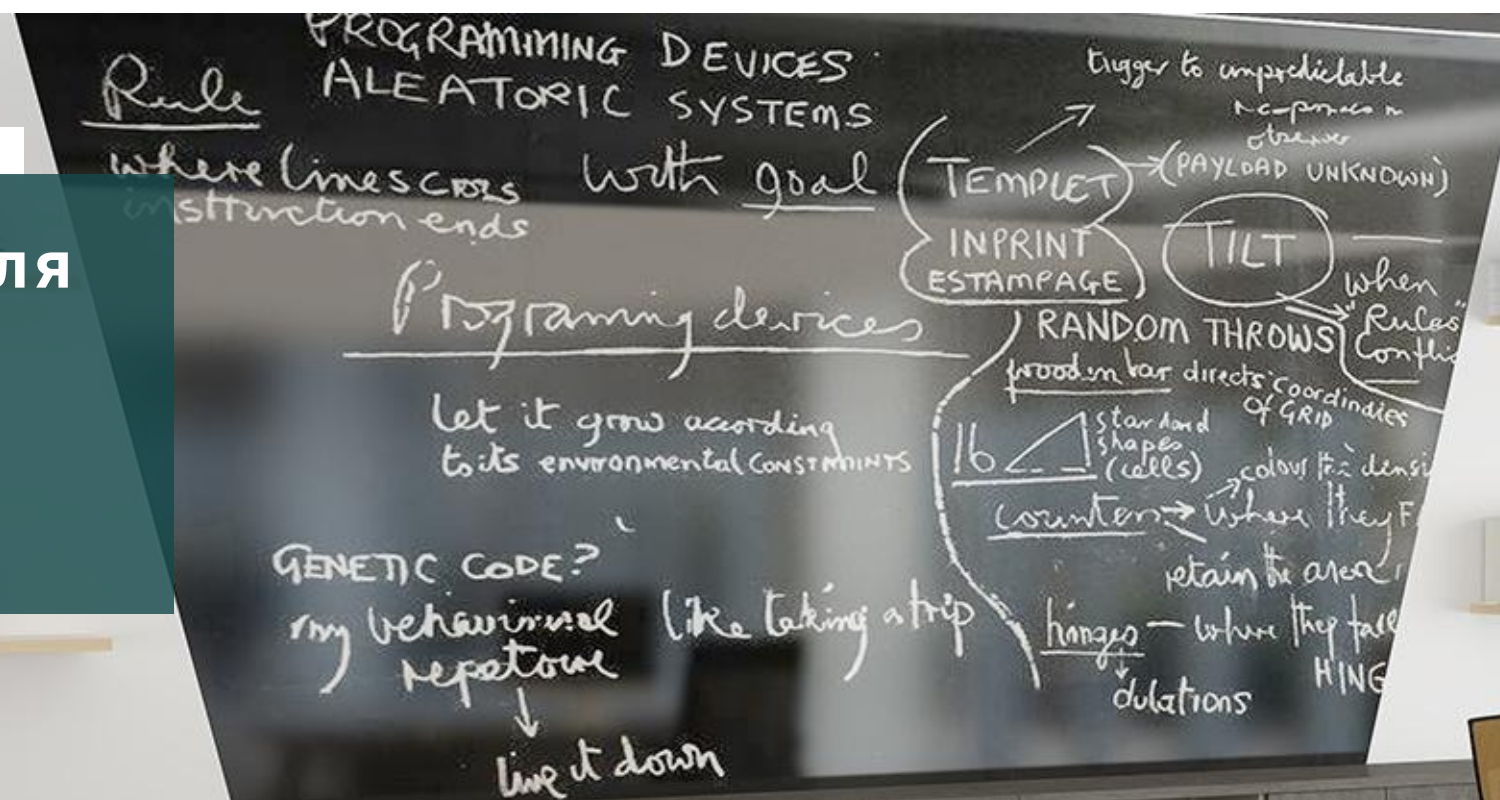 PROGRAMMING DEVICES
ALEATORIC SYSTEMS
Rule
where lines cross
instruction ends
with goal
ля
Programing devices
let it grow acording
to its environmental CONSTRAINTS
GENETIC CODE?
my behavioural
repetoire
like taking a trip
live it down
trigger to unpredictable
observer
TEMPLET
(PAYLOAD UNKNOWN)
INPRINT
ESTAMPAGE
TILT
when
"Rules"
Conflic
RANDOM THROWS
wooden bar directs coordindies
of GRID
16
standard
shapes
(cells)
colour the densi
counters where they F
retain the area
hinges — where they fall
HING
dulations